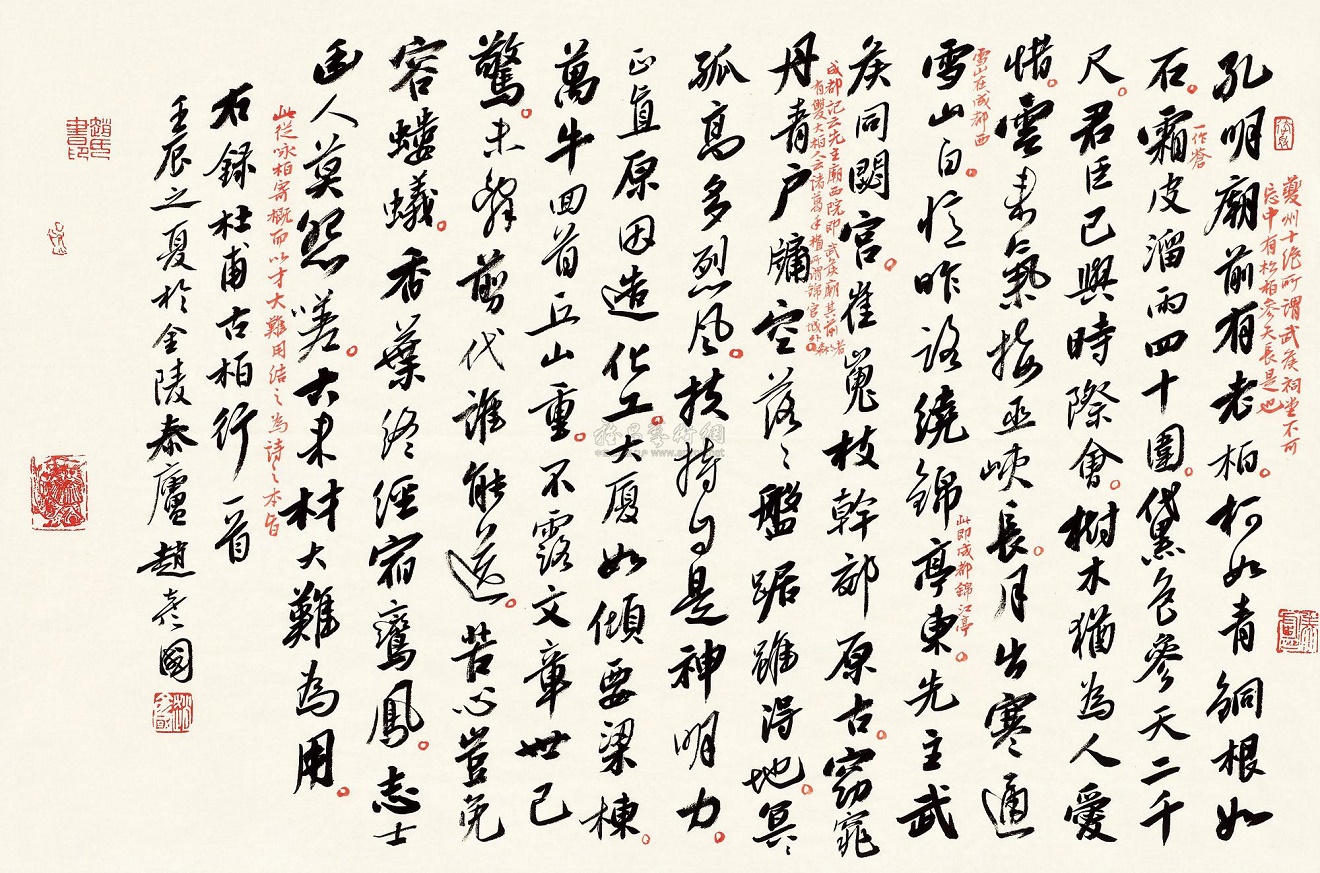 夔州十絕所謂武侯祠堂不可
忘中有松柏參天長是也
孔明廟前有老柏。柯如青銅根如
一作蒼
石。霜皮溜雨四十圍。黛色參天二千
尺。君臣已與時際會。樹木猶為人愛
惜。雲來氣接巫峽長。月出寒通
雪山在成都西
雪山白。憶昨路繞錦亭東。先主武
此即成都錦江亭
侯同閟宮。崔嵬枝幹郊原古。窈窕
成都記云先主廟西院即武侯廟其前
有雙大柏人云諸葛手植所謂錦官城外
丹青戶牖空。落〻盤踞雖得地。冥〻
孤高多烈風。扶持自是神明力。
正直原因造化工。大廈如傾要梁棟。
萬牛回首丘山重。不露文章世已
驚。未辭剪伐誰能送。苦心豈免
容螻蟻。香葉終經宿鸞鳳。志士
幽人莫怨嗟。古來材大難為用。
此從咏柏寄概而以才大難用結〻為詩〻本旨
右錄杜甫古柏行一首
壬辰之夏於金陵泰廬趙彥國